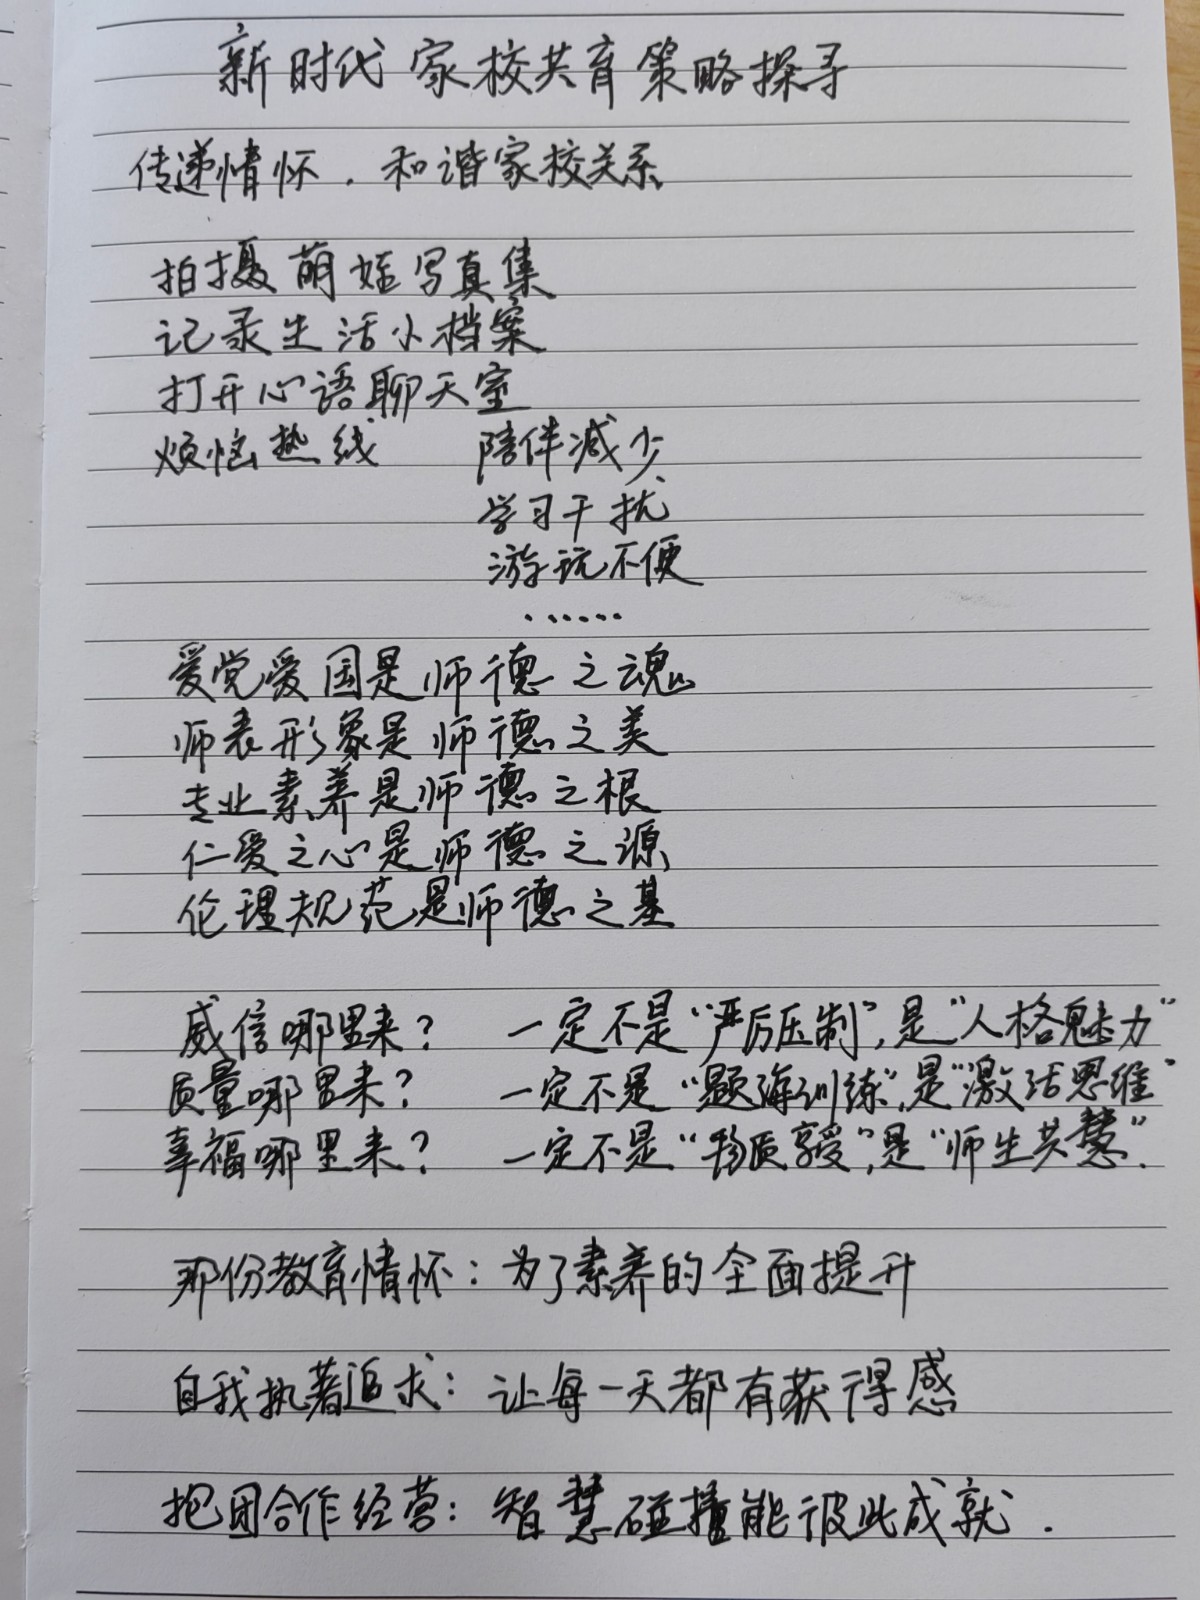 新时代家校共育策略探寻
传递情怀．和谐家校关系
拍摄萌娃写真集
记录生活小档案
打开心语聊天室
烦恼热线 陪伴减少
学习干扰
游玩不便
······
爱党爱国是师德之魂
师表形象是师德之美
专业素养是师德之根
仁爱之心是师德之源
伦理规范是师德之基
威信哪里来？ 一定不是“严厉压制”，是“人格魅力”
质量哪里来？ 一定不是“题海训练”，是“激活思维”
幸福哪里来？ 一定不是“物质享受”，是“师生共慧”．
那份教育情怀：为了素养的全面提升
自我执着追求：让每一天都有获得感
抱团合作经营：智慧碰撞能彼此成就．